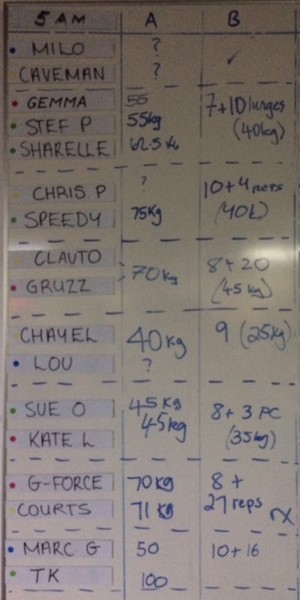 5 AM A B
MILO ?
CAVEMAN ? ✓
GEMMA 55 7+10 lunges
STEF P 55kg (40kg)
SHARELLE 62.5 kg
CHRIS P ? 10+4 reps
SPEEDY 75kg (40k)
CLAUTO 8+20
GRUZZ 70kg (45kg)
CHAYEL 40kg 9 (25kg)
LOU ?
SUE O 45kg 8+3 PC
KATE L 45kg (35kg)
G-FORCE 70kg 8+
COURTS 71kg 27 reps rx
MARC G 50 10+16
TK 100